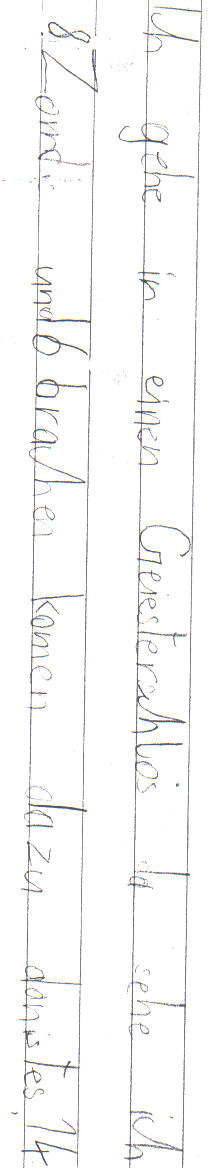 Ich gehe in einen Geisterschlos da sehe ich
8 Zombi und 6 drachen komen dazu dan ist es 14